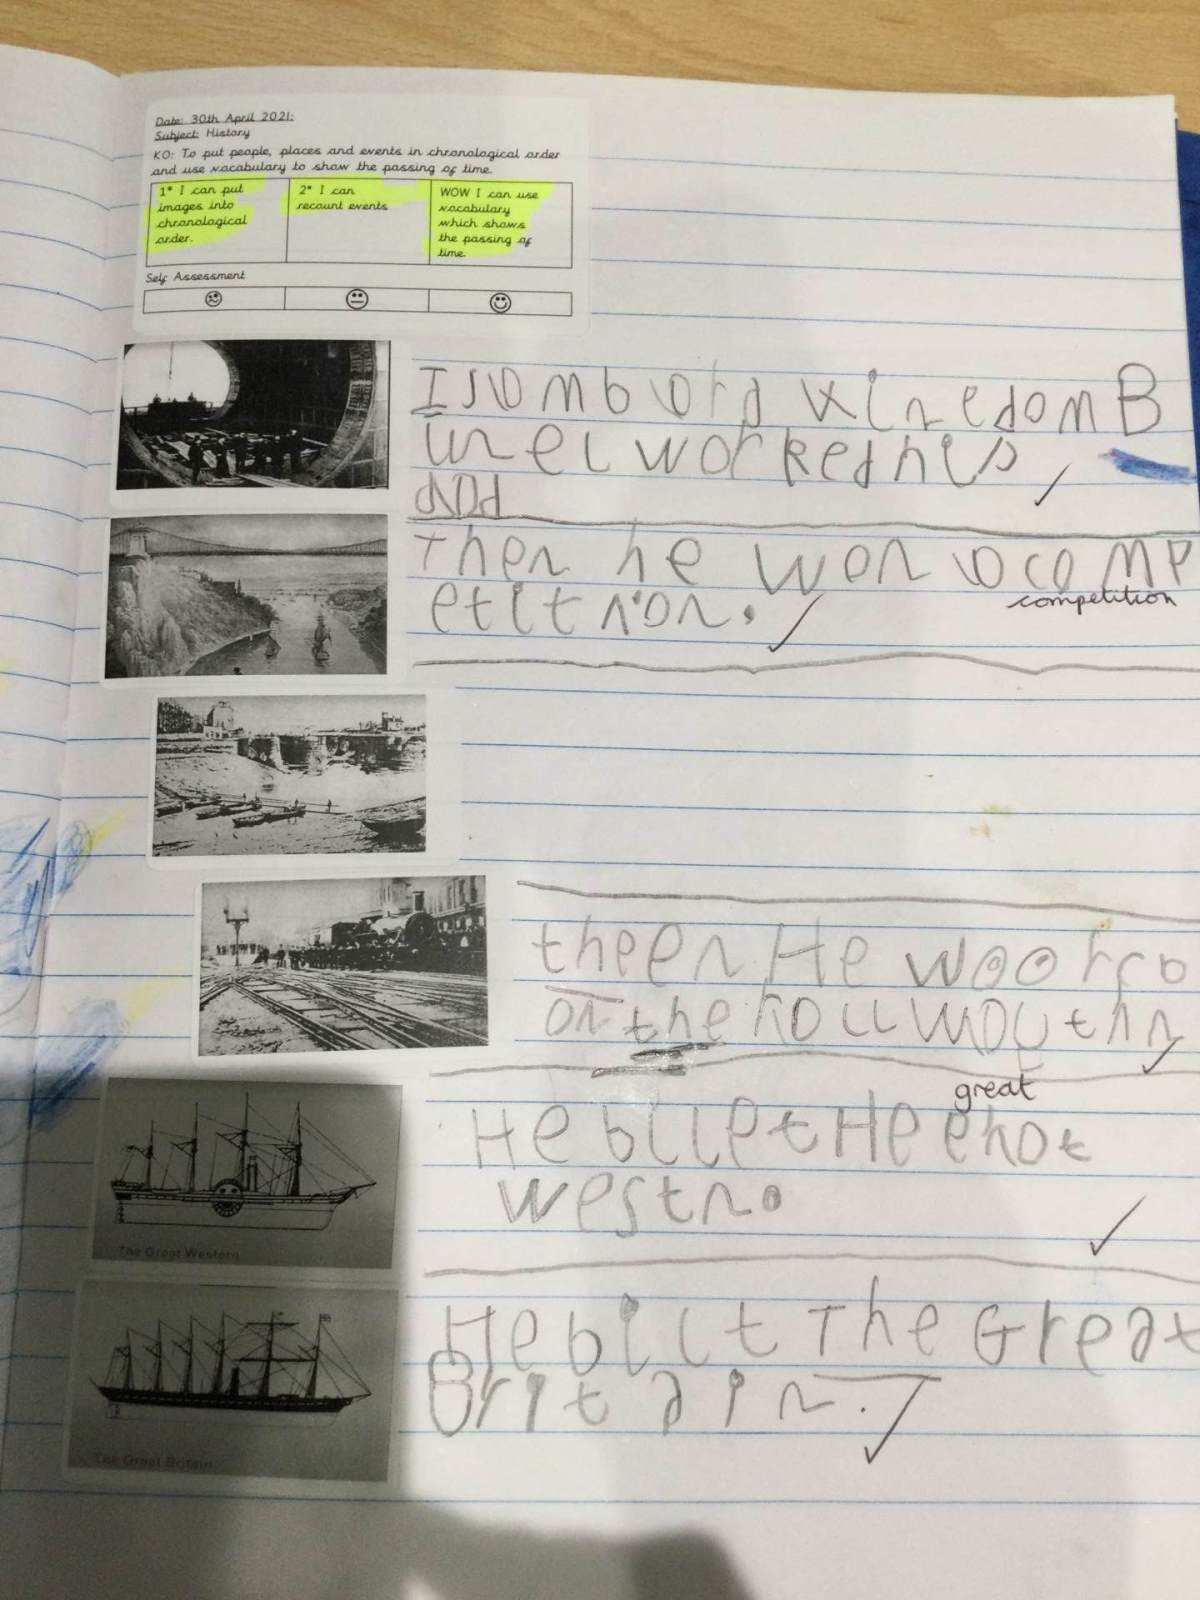 Date: 30th April 2021:
Subject: History
KO: To put people, places and events in chronological order
and use vocabulary to show the passing of time.
1* I can put
images into
chronological
order.
2* I can
recount events
WOW I can use
vocabulary
which shows
the passing of
time.
Self Assessment
Isombord kingdom B
unel worked his
dad
Then he won a comp
competition
etition.
theen He woorco
on the rollway thn
great
He bilt the
westn.
He bilt The Great
Britain.
The Great Western
The Great Britain